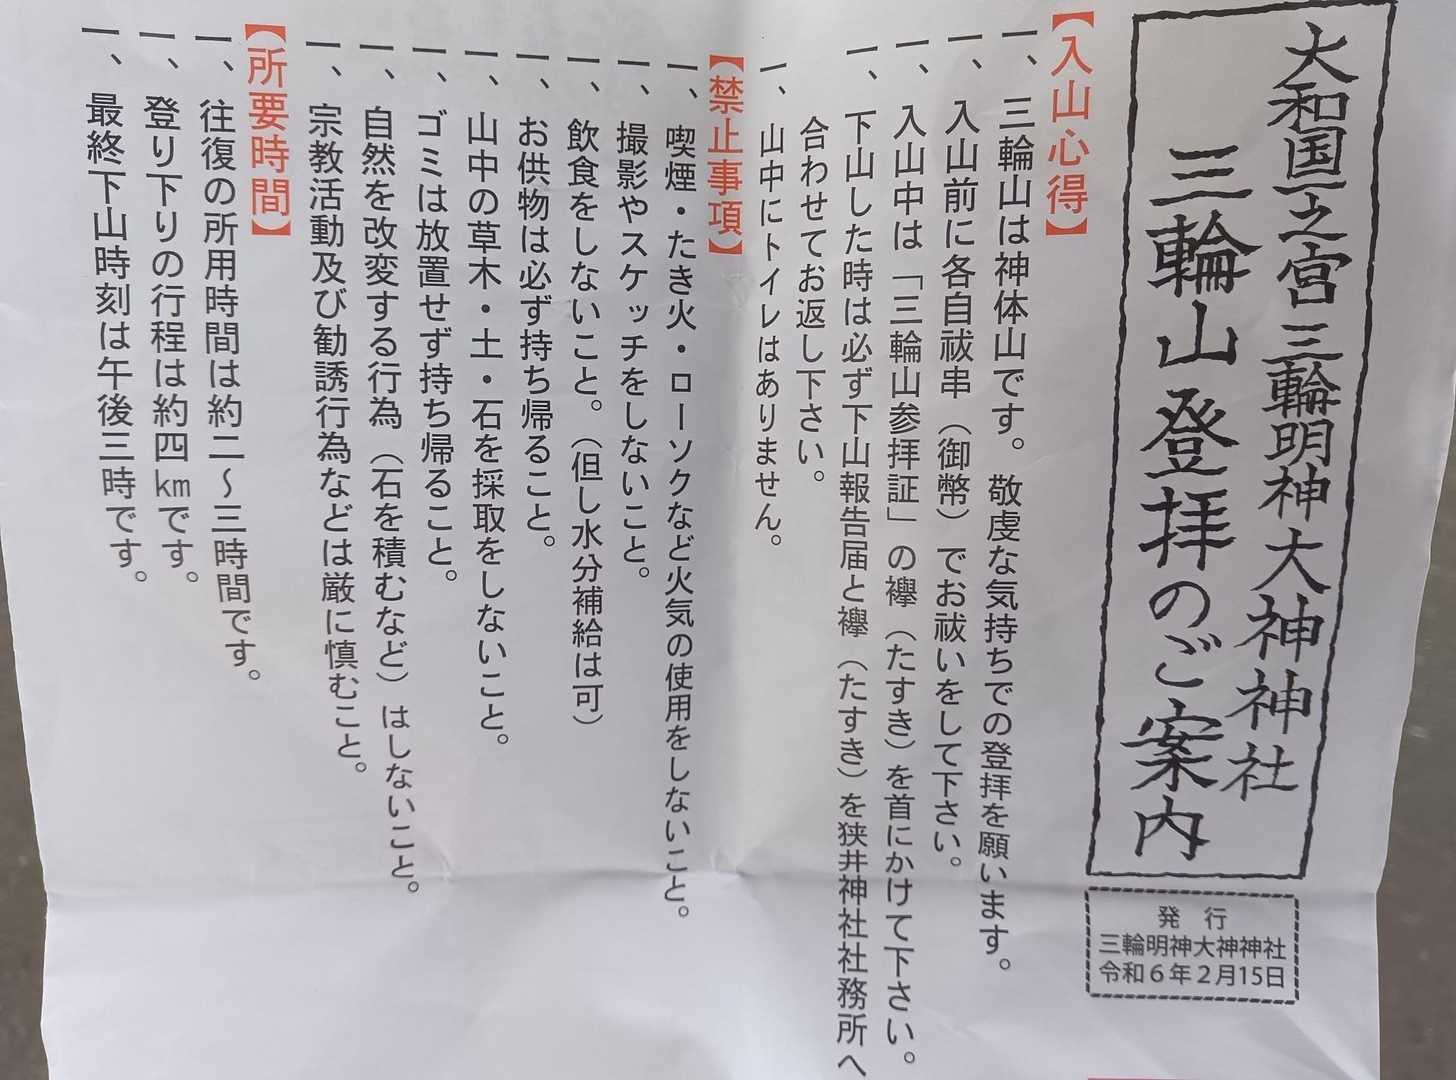 大和国一之宮 三輪明神大神神社
三輪山登拝のご案内
発 行
三輪明神大神神社
令和６年２月15日
【入山心得】
一、三輪山は神体山です。敬虔な気持ちでの登拝を願います。
一、入山前に各自祓串（御幣）でお祓いをして下さい。
一、入山中は「三輪山参拝証」の襷（たすき）を首にかけて下さい。
一、下山した時は必ず下山報告届と襷（たすき）を狭井神社社務所へ
合わせてお返し下さい。
一、山中にトイレはありません。
【禁止事項】
一、喫煙・たき火・ローソクなど火気の使用をしないこと。
一、撮影やスケッチをしないこと。
一、飲食をしないこと。（但し水分補給は可）
一、お供物は必ず持ち帰ること。
一、山中の草木・土・石を採取をしないこと。
一、ゴミは放置せず持ち帰ること。
一、自然を改変する行為（石を積むなど）はしないこと。
一、宗教活動及び勧誘行為などは厳に慎むこと。
【所要時間】
一、往復の所用時間は約二～三時間です。
一、登り下りの行程は約四㎞です。
一、最終下山時刻は午後三時です。